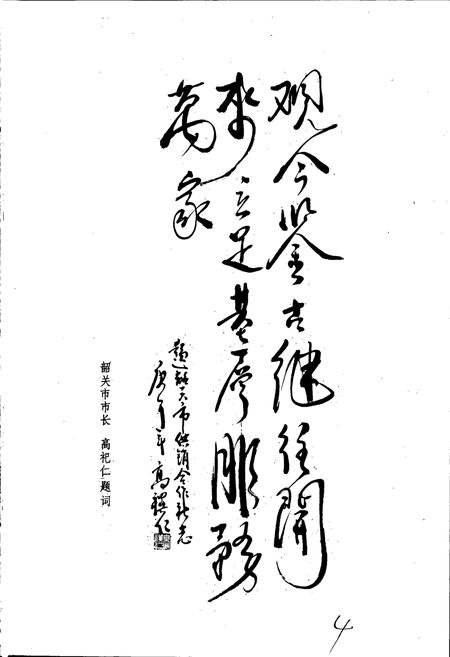 观今鉴古继往开
来立足基层服务
万家
题韶关市供销合作社志
庚午年 高祀仁
韶关市市长 高祀仁题词
4